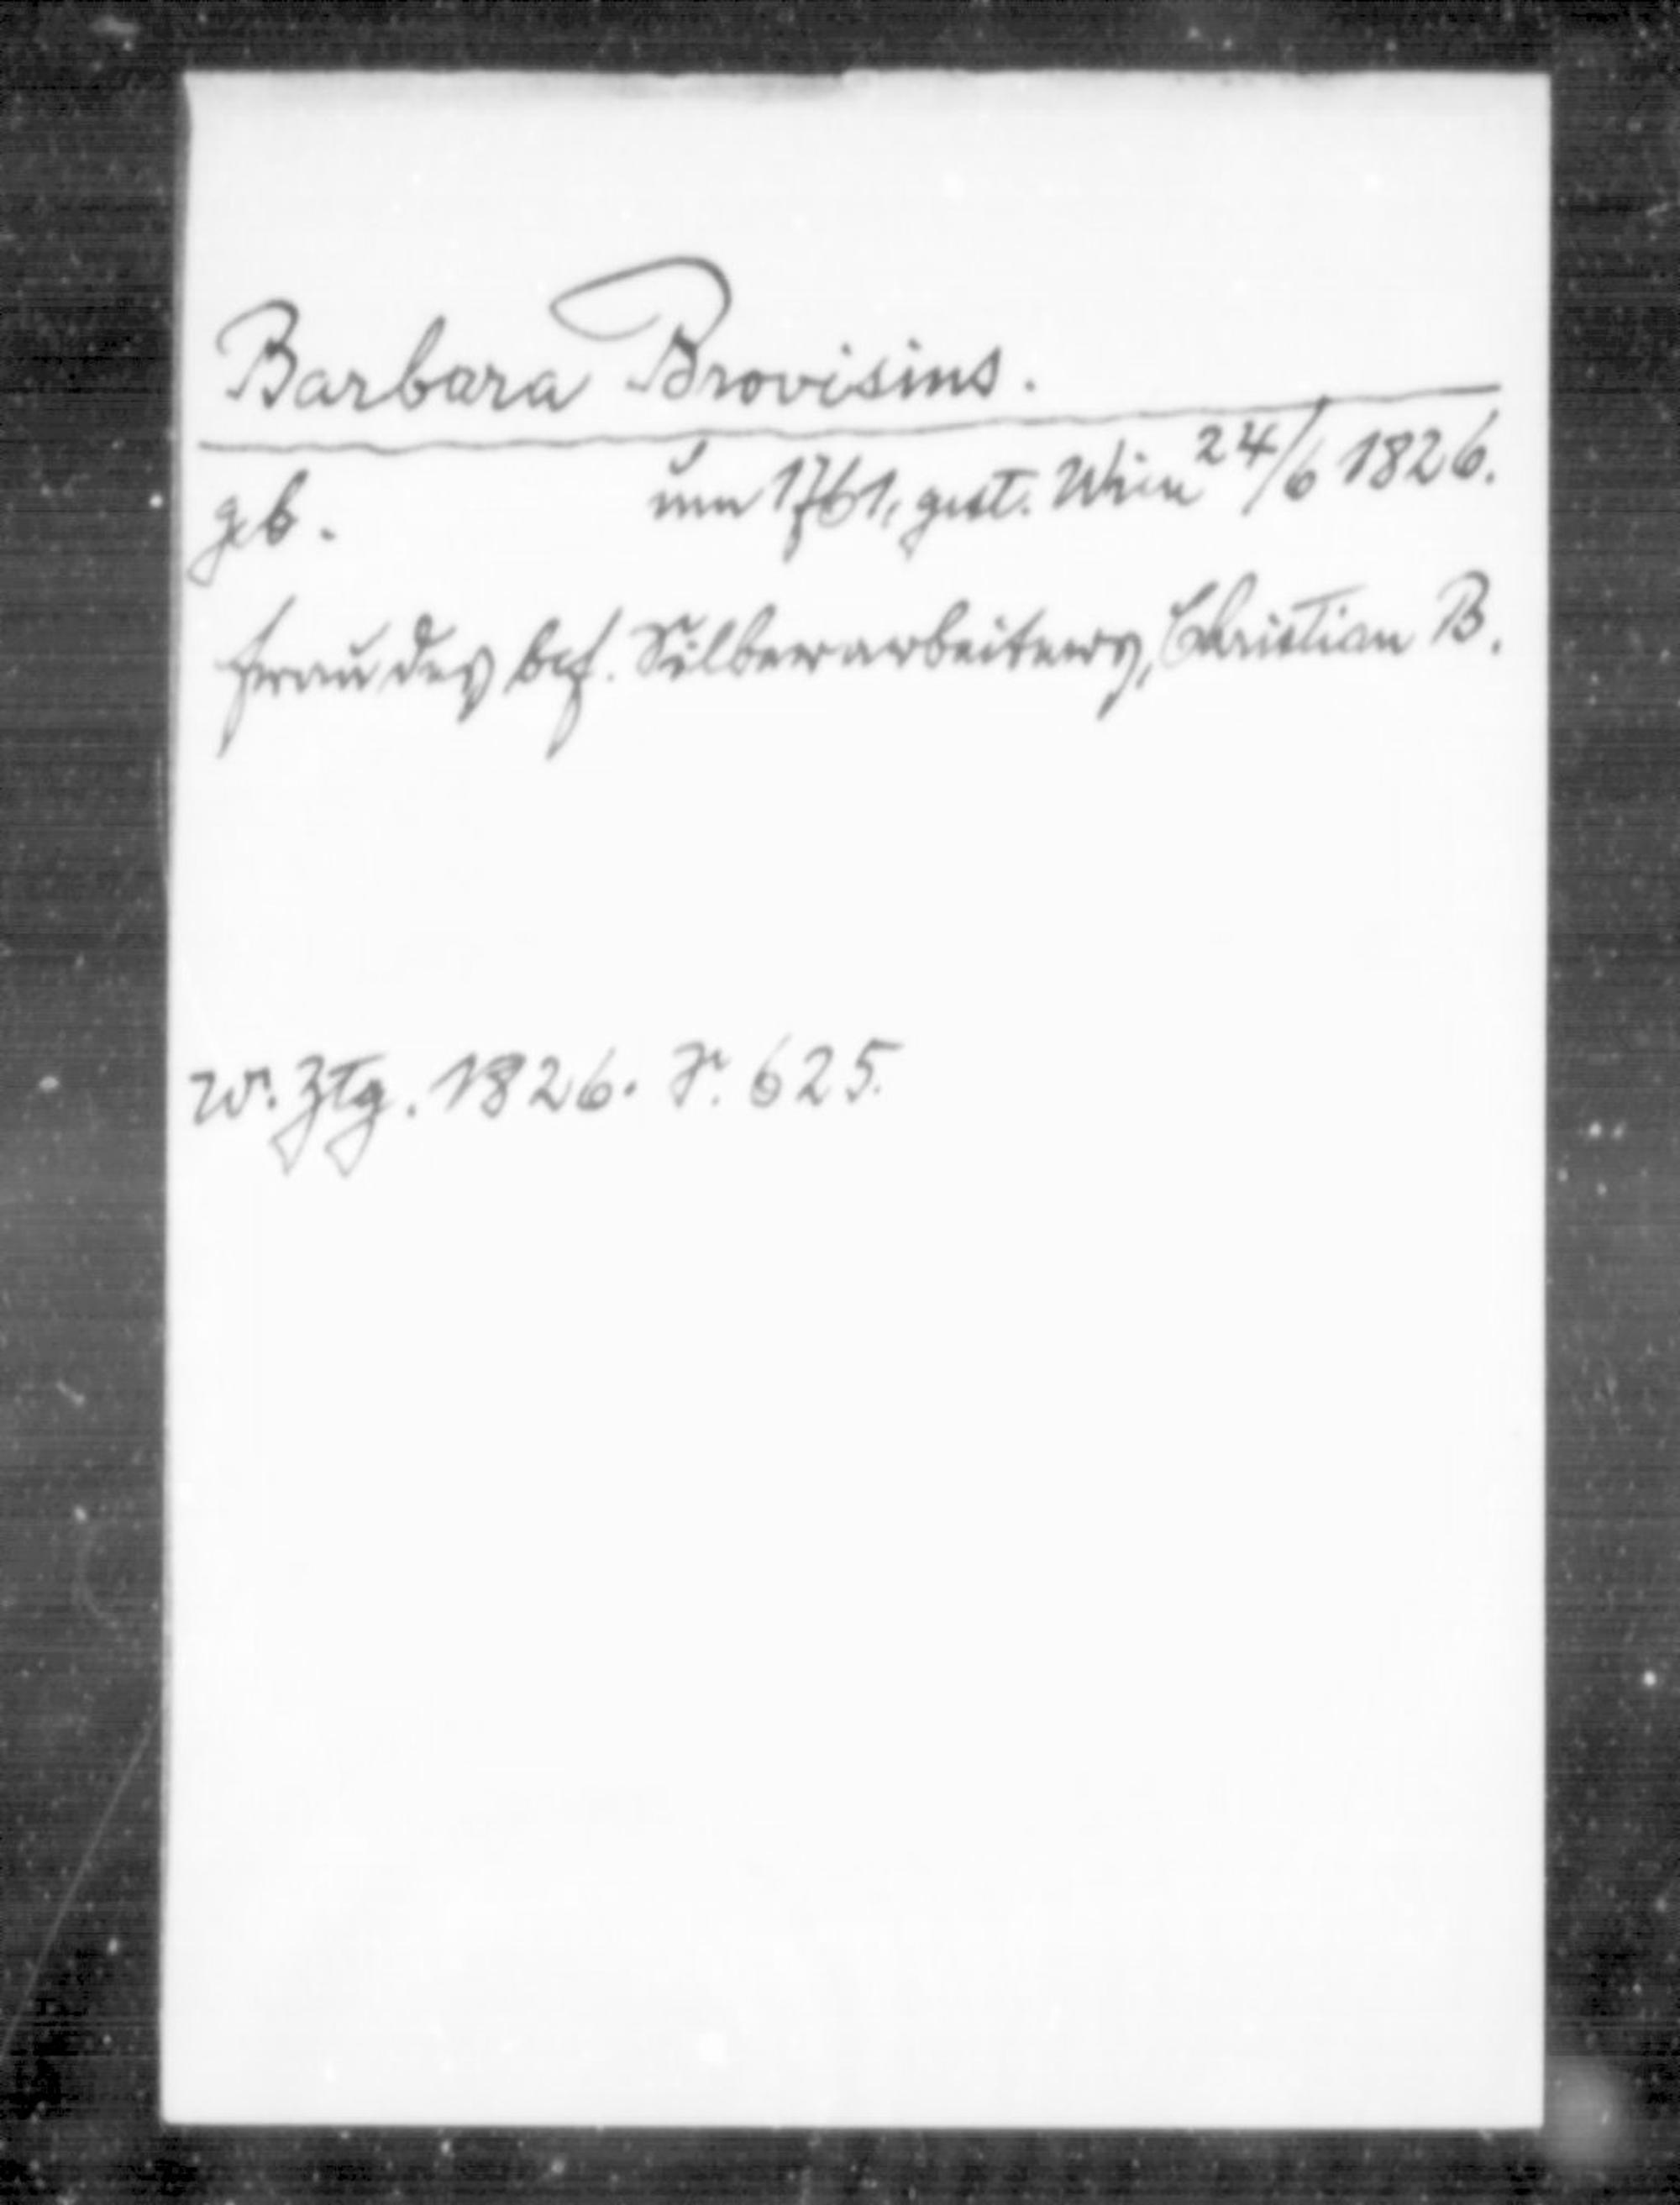 Barbara Brovisius.
geb. um 1761, gest. Wien 24/6 1826.
Frau des bef. Silberarbeiters, Christian B.
W. Ztg. 1826. S. 625.